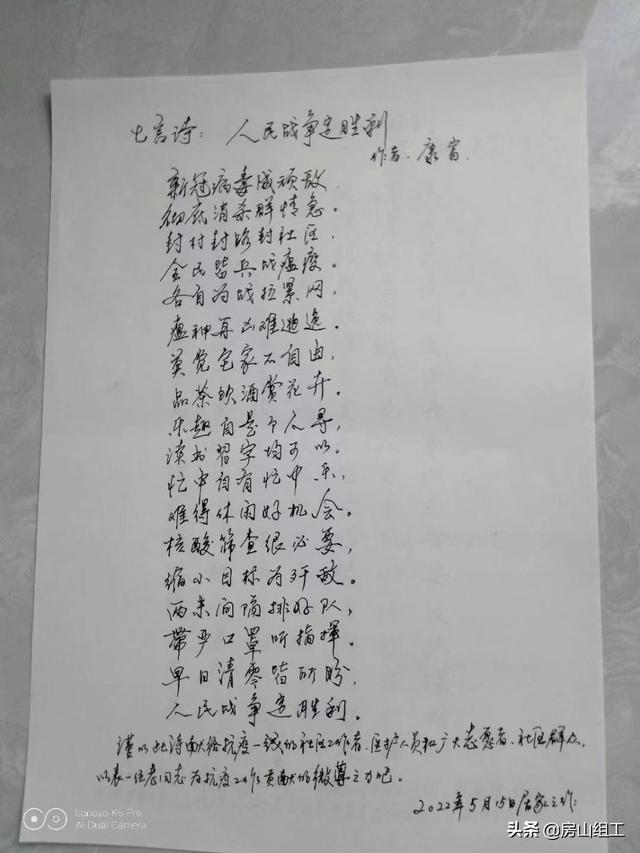 七言诗：人民战争定胜利
作者、康富
新冠病毒成顽敌，
彻底消杀群情急。
封村封路封社区，
全民皆兵战瘟疫。
各自为战拉累网，
瘟神再凶难逃逸。
莫觉宅家不自由，
品茶饮酒赏花卉。
乐趣自是个人寻，
读书习字均可以。
忙中自有忙中乐，
难得休闲好机会。
核酸筛查很必要，
缩小目标为歼敌。
两米间隔排好队，
带严口罩听指挥。
早日清零皆所盼，
人民战争定胜利。
谨以此诗献给抗疫一线的社区工作者、医护人员和广大志愿者、社区群众，
以表一位老同志为抗疫工作贡献的微薄之力吧。
2022年5月15日居家之作
Lenovo K5 Pro
AI Dual Camera
头条 @房山组工